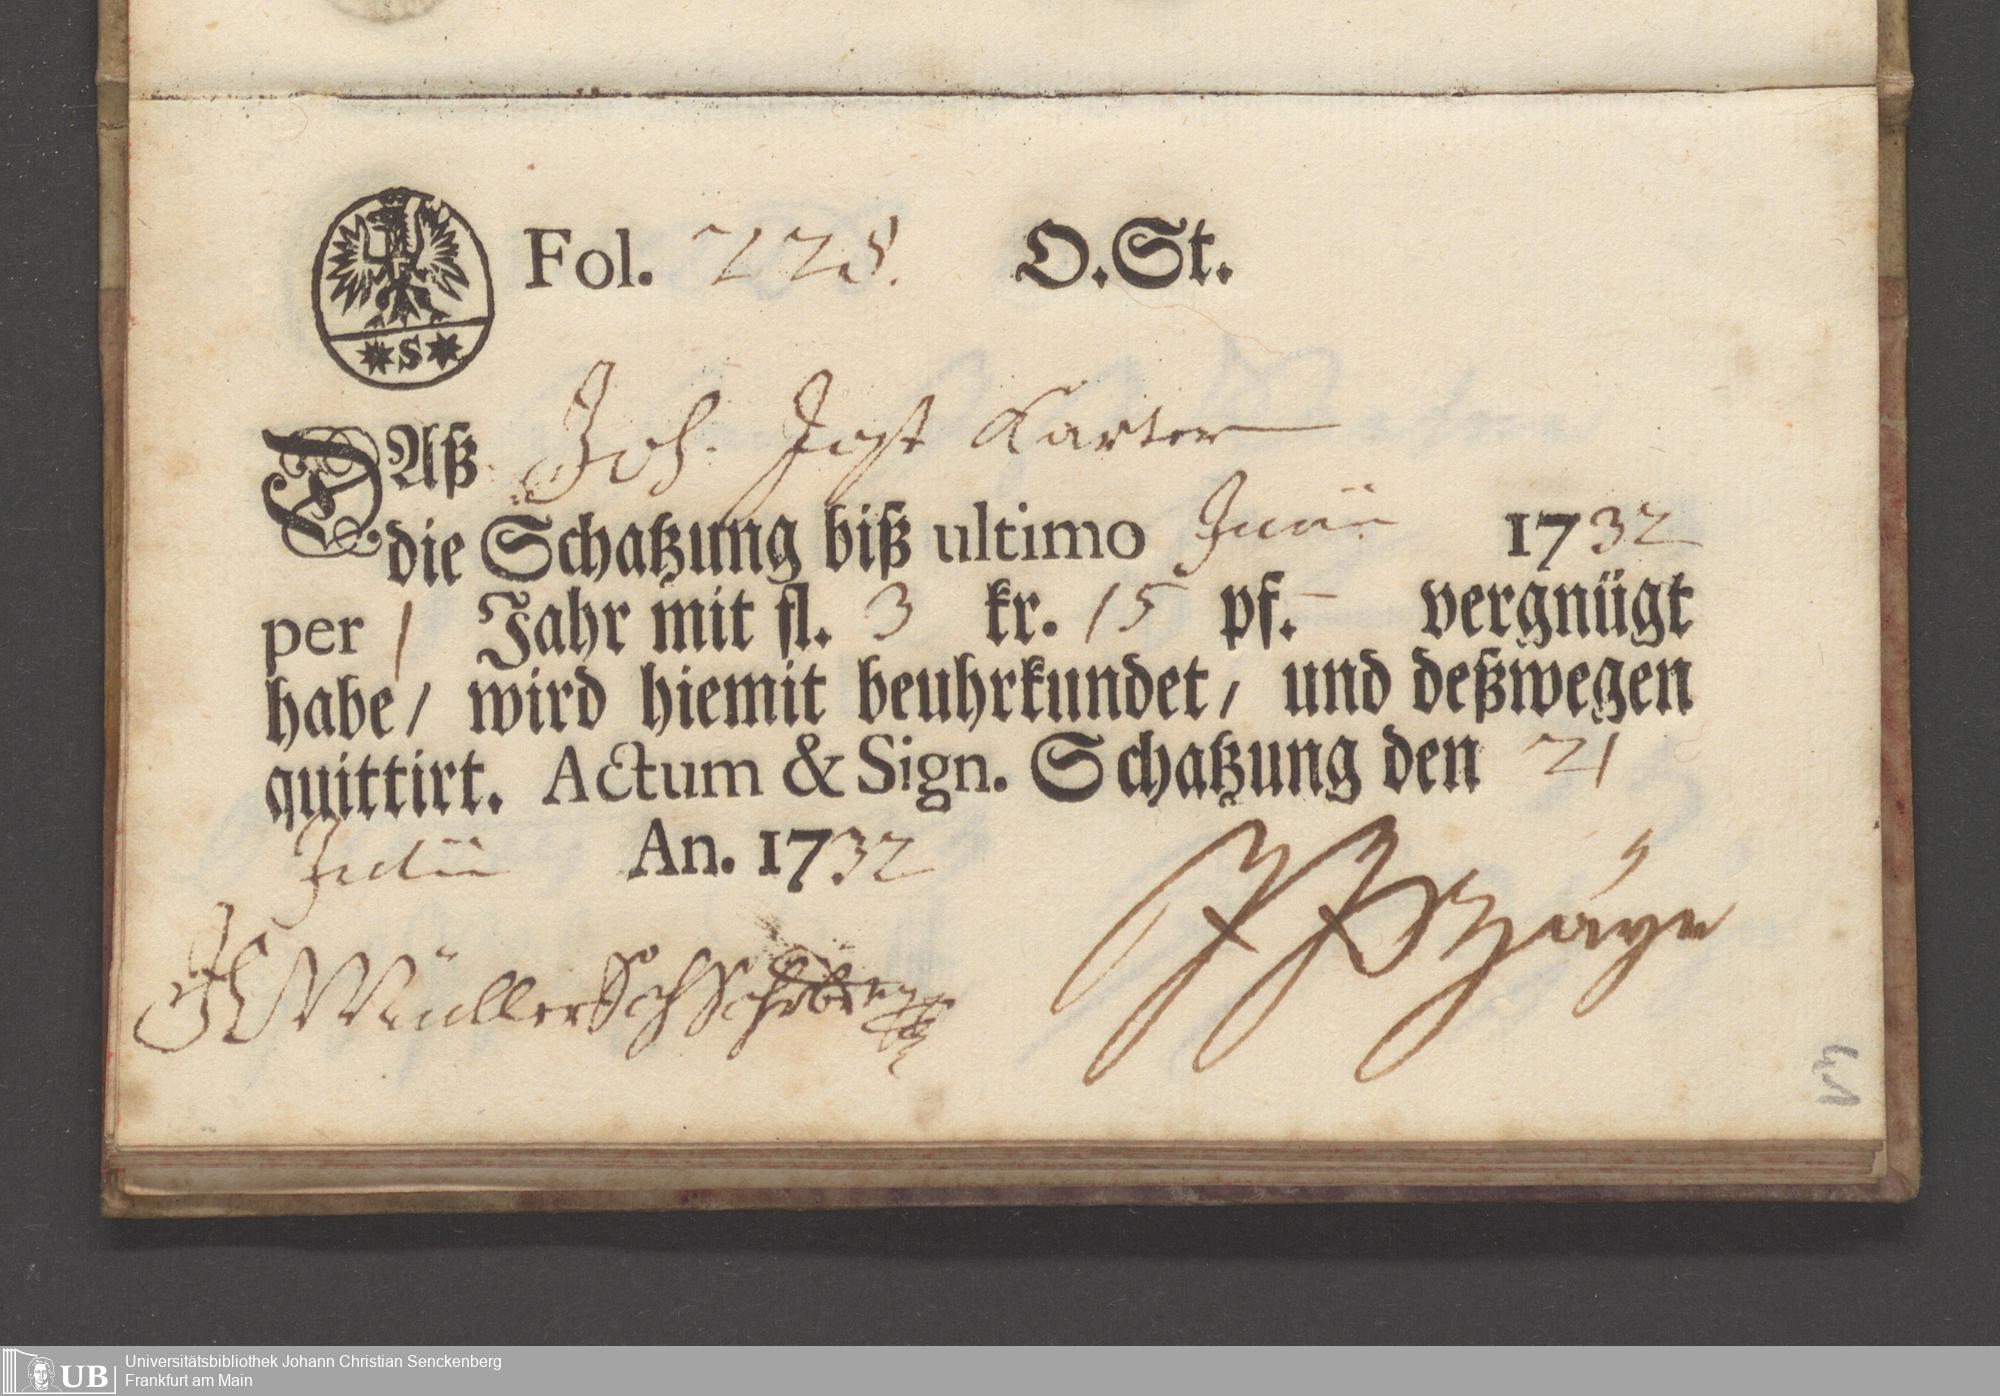 Fol. 228. O.St.
S
DAß Joh. Jost Karter
die Schatzung biß ultimo Junii 1732
per 1 Jahr mit fl. 3 kr. 15 pf. – vergnügt
habe / wird hiemit beuhrkundet / und deßwegen
quittirt. Actum & Sign. Schatzung den 21
Julii An. 1732
Müller
3
UB
Universitätsbibliothek Johann Christian Senckenberg
Frankfurt am Main